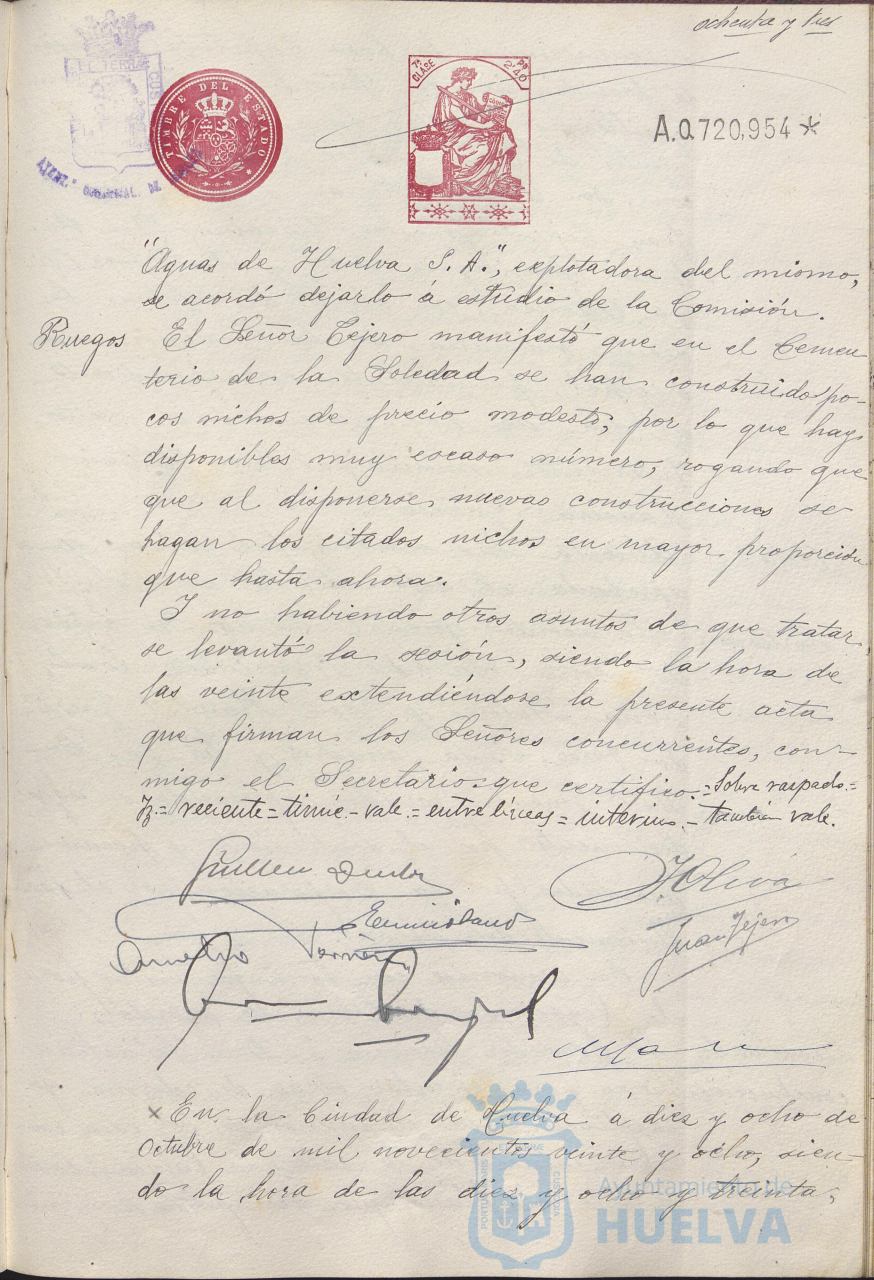 ochenta y tres
TIMBRE DEL ESTADO
7ª CLASE
Pº 2'40
A.0.720,954 *
"Aguas de Huelva S. A.", explotadora del mismo,
se acordó dejarlo á estudio de la Comisión.
Ruegos El Señor Tejero manifestó que en el Cemen-
terio de la Soledad se han construido po-
cos nichos de precio modesto, por lo que hay
disponibles muy escaso número, rogando que
que al disponerse nuevas construcciones se
hagan los citados nichos en mayor proporción
que hasta ahora.
Y no habiendo otros asuntos de que tratar,
se levantó la sesión, siendo la hora de
las veinte extendiéndose la presente acta
que firman los Señores concurrentes, con-
migo el Secretario que certifico.=Sobre raspado=
veciente= timie.-vale.=entre líneas=interino.-también vale.
J. Oliva
Juan Tejero
En la Ciudad de Huelva á diez y ocho de
Octubre de mil novecientos veinte y ocho, sien-
do la hora de las diez y ocho y treinta,
PORTUS MARIS
CUSTODIA
Ayuntamiento de
HUELVA